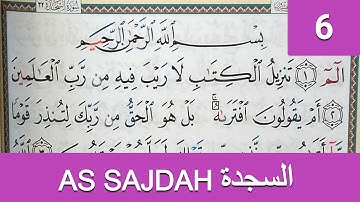 6
بِسْمِ اللَّهِ الرَّحْمَٰنِ الرَّحِيمِ
الٓمٓ ١ تَنْزِيلُ الْكِتَابِ لَا رَيْبَ فِيهِ مِنْ رَبِّ الْعَالَمِينَ
٢ أَمْ يَقُولُونَ افْتَرَاهُ ۚ بَلْ هُوَ الْحَقُّ مِنْ رَبِّكَ لِتُنْذِرَ قَوْمًا
AS SAJDAH السجدة